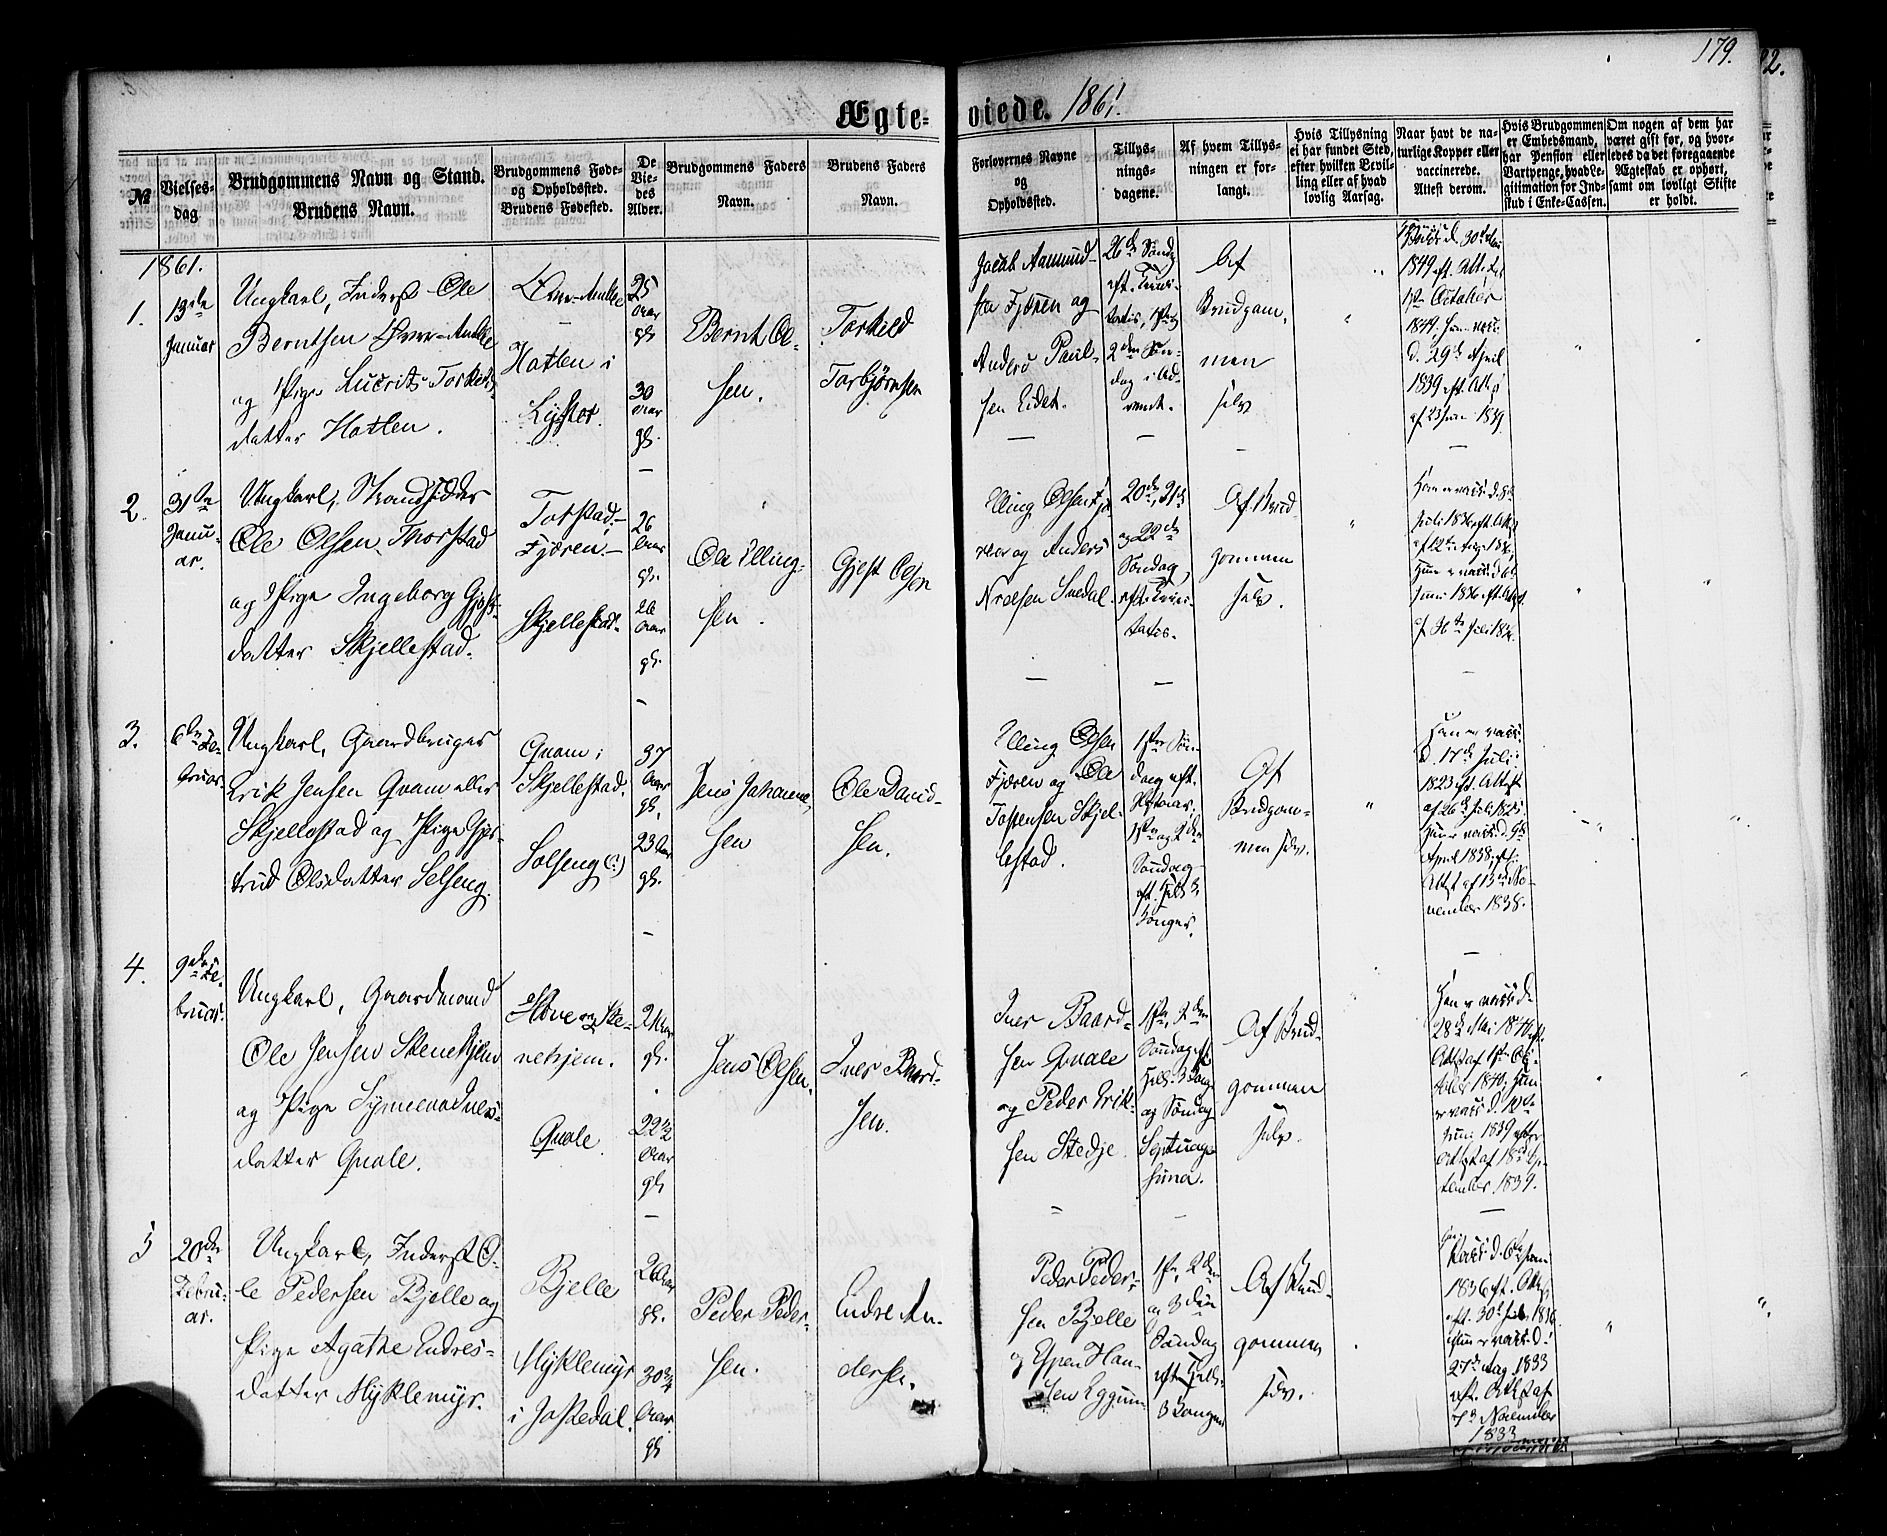 179.
Ægteviede. 1861.
№
Vielses-
dag.
Brudgommens Navn og Stand.
Brudens Navn.
Brudgommens Føde-
og Opholdssted.
Brudens Fødested.
De
Vie-
des
Alder.
Brudgommens Faders
Navn.
Brudens Faders
Navn.
Forlovernes Navne
og
Opholdssted.
Tillys-
nings-
dagene.
Af hvem Tillys-
ningen er for-
langt.
Hvis Tillysning
ei har fundet Sted,
efter hvilken Bevil-
ling eller af hvad
lovlig Aarsag.
Naar havt de na-
turlige Kopper eller
vaccinerede.
Attest derom.
Hvis Brudgommen
er Embedsmand,
har Pension eller
Vartpenge, hvad Le-
gitimation for Ind-
skud i Enke-Cassen.
Om nogen af dem har
været gift før, og hvor-
ledes da det foregaaende
Ægteskab er ophørt,
samt om lovligt Skifte
er holdt.
1861.
1.
13de
Januar
Ungkarl, Inderst Ole
Berntsen
og Pige
datter Hatlen.
Hatlen i
Lyster.
25
Aar
gl.
30
Aar
gl.
Bernt Ol-
sen.
Torkild
Torbjørnsen
Jacob Aamund-
sen Fjæren og
Anders Paul-
sen Eidet.
26de Sønd.
2den Søn-
dag i Ad-
vent.
Af
Brudgom-
men
selv
1849 eft. Att. af
1ste October
1849. Hun vacc.
d. 29de April
1839 eft. Att.
af 23 Juni 1839.
2.
31te
Janu-
ar.
Ungkarl, Strandsidder
Ole Olsen Thorstad
og Pige Ingeborg Gjest-
datter Skjellestad.
Torstad,-
Fjæren.-
Skjellestad.
26
Aar
gl.
26
Aar
gl.
Ole Elling-
sen.
Gjest Olsen
Elling Olsen Fjæ-
ren og Anders
Nielsen
20de, 21de
og 22de
Søndag
eft. Trini-
tatis.
Af Brud-
gommen
selv.
Han er vacc. d. 8de
Juli 1836 eft. Att.
3.
6te Fe-
bruar.
Ungkarl, Gaardbruger
Erik Jensen Qvam eller
Skjellestad og Pige Gjer-
trud Olsdatter Selseng.
Qvam i
Skjellestad.
Solseng (:)
37
Aar
gl.
23 Aar
gl.
Jens Johanne-
sen
Ole David-
sen.
Elling Olsen
Fjæren og Ole
Tostensen Skjel-
lestad.
1ste Søn-
dag eft.
Nytaar,
1ste og 2den
Søndag
eft. Hell. 3
Konger.
Af
Brudgom-
men selv.
Han er vacc.
d. 17de Juli
1823 eft. Attest
af 26de Juli 1823.
Hun er vacc. d. 9de
April 1838 eft.
Att. af 13de No-
vember 1838.
4.
9de Fe-
bruar.
Ungkarl, Gaardmand
Ole Jensen Stenehjem
og Pige Synneva Ivers-
datter Qvale.
Hove og Ste-
nehjem.
Qvale.
21 Aar
gl.
22 1/2
Aar
gl.
Jens Olsen.
Iver Baard-
sen.
Iver Baard-
sen Qvale
og Peder Erik-
sen Stedje.
1ste, 2den
Søndag eft.
Hell. 3 Kong.
og Søndag
Septuage-
sima.
Af Brud-
gommen
selv.
Han er vacc. d.
28de Mai 1840 eft.
Attest af 1ste Oc-
tober 1840, Hun
er vacc. d. 12te
Juni 1839 efter
Attest af 18de Sep-
tember 1839.
5
20de
Febru-
ar.
Ungkarl, Inderst O-
le Pedersen Bjelle og
Pige Agathe Endres-
datter Myklemyr.
Bjelle
Myklemyr
i Jostedal.
26 Aar
gl.
30 3/4
Aar
gl.
Peder Peder-
sen.
Endre An-
dersen.
Peder Peder-
sen Bjelle
og Espen Han-
sen Eggum.
1ste, 2den
og 3die
Søndag
eft. Hell.
3 Konger
Af Brud-
gommen
selv.
Han
vacc. d. 6te Juni
1836 eft. Att.
Hun er vacc. d.
27de Aug. 1833
eft. Attest af
7de November
1833